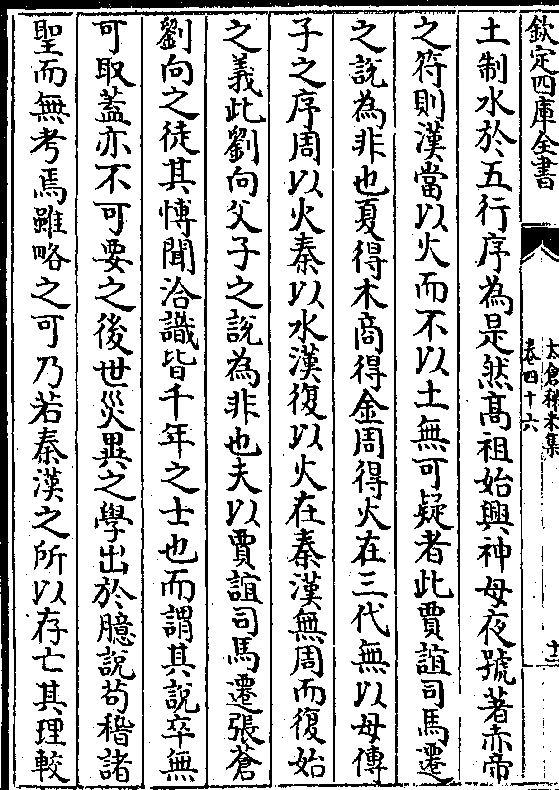 欽定四庫全書
太倉稊米集
卷四十六
十三
土制水於五行序為是然髙祖始興神母夜號著赤帝
之符則漢當以火而不以土無可疑者此賈誼司馬遷
之說為非也夏得木商得金周得火在三代無以母傳
子之序周以火秦以水漢復以火在秦漢無周而復始
之義此劉向父子之說為非也夫以賈誼司馬遷張蒼
劉向之徒其愽聞洽識皆千年之士也而謂其說卒無
可取蓋亦不可要之後世災異之學出於臆說茍稽諸
聖而無考焉雖略之可乃若秦漢之所以存亡其理較